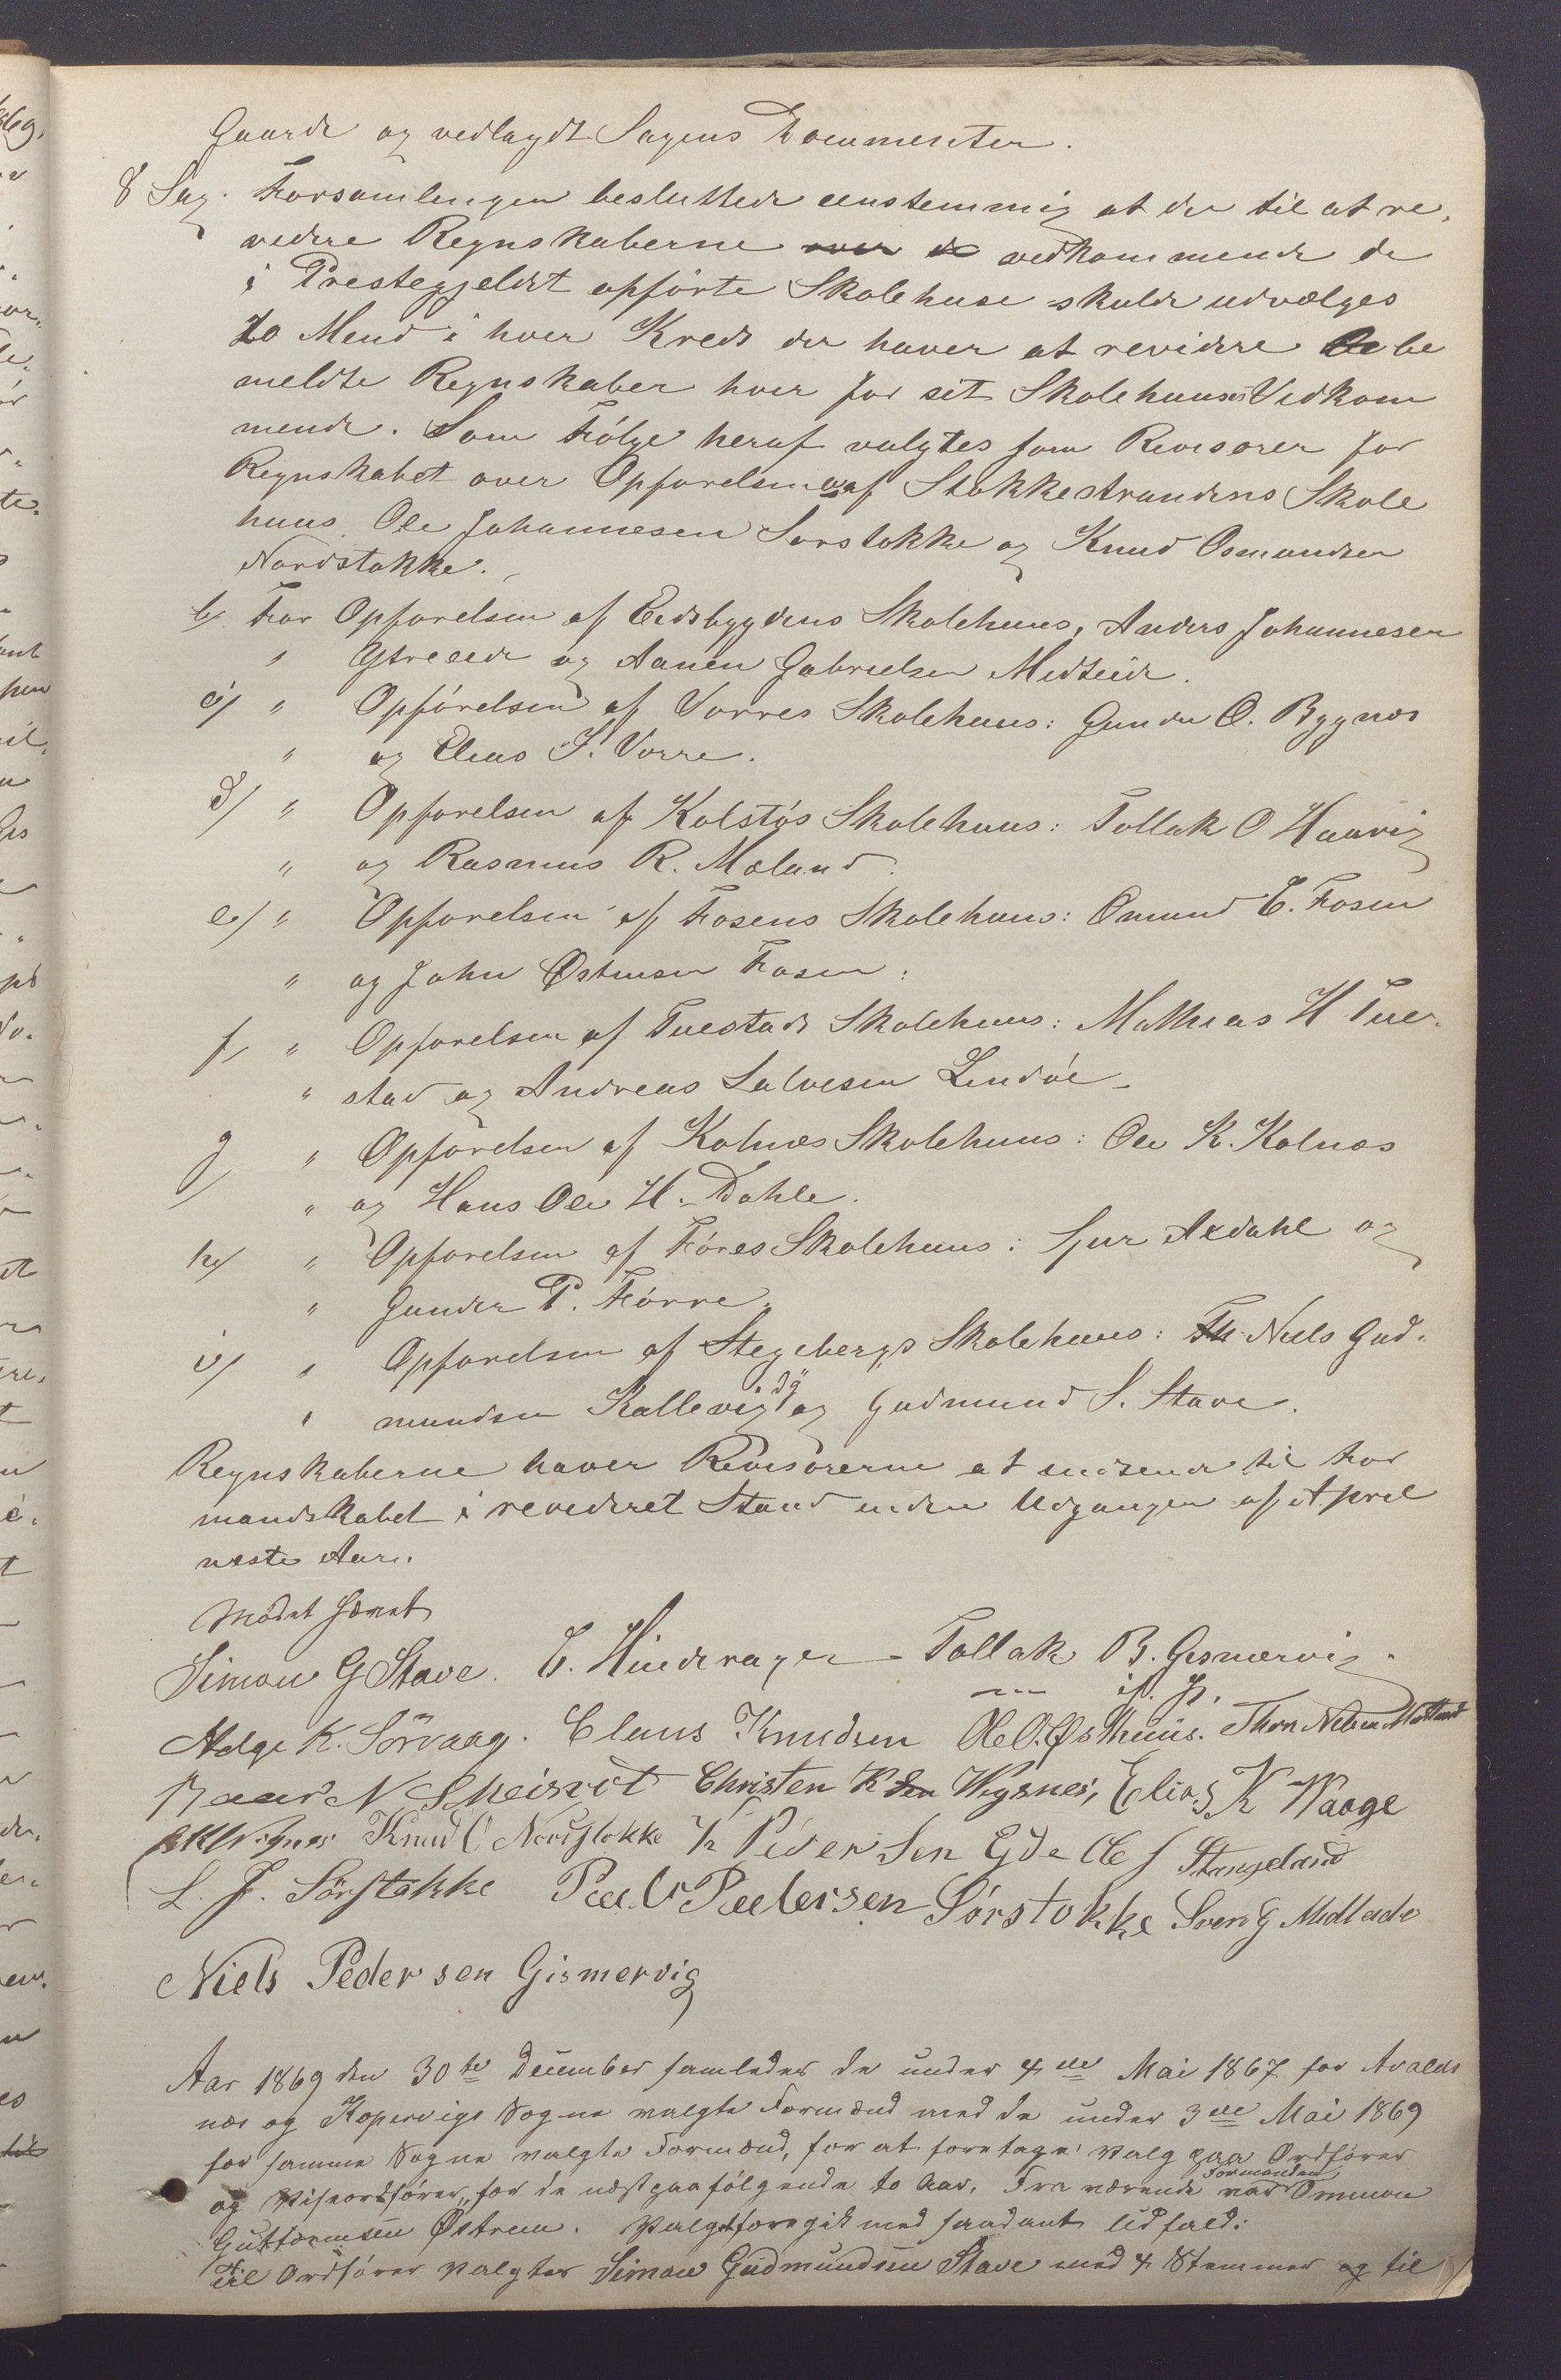 Gaarde og vedlagdt Sagens Documenter.
8 Sag. Forsamlingen besluttede eenstemmig at der til at re-
videre Regnskaberne over de vedkommende de
i Prestegjeldet opførte Skolehuse skulde udvælges
to Mend i hver Kreds der haver at revidere be
meldte Regnskaber hver for sit Skolehuuses Vedkom
mende. Som Følge heraf valgtes som Revisorer for
Regnskabet over Opførelsen af Stokkestrandens Skole
huus Ole Johannesen Sørstokke og Knud Osmundsen
Nordstokke.
b/ For Opførelsen af Eidsbygdens Skolehuus, Anders Johannesen
" Ytreeide og Aanen Gabrielsen Mideide.
c/ " Opførelsen af Vorres Skolehuus: Gunder O. Bygnes
" og Elias J. Vorre.
d/ " Opførelsen af Kolstøs Skolehuus: Tollak O Haavig
" og Rasmus R. Moland.
e/ " Opførelsen af Fosens Skolehuus: Omund E. Fosen
" og John Østensen Fosen.
f/ " Opførelsen af Tuestads Skolehuus: Mathias H Tue-
" stad og Andreas Salvesen Lindøe
g/ " Opførelsen af Kolnæs Skolehuus: Ole K. Kolnæs
" og Hans Ole H. Dahle.
h/ " Opførelsen af Føres Skolehuus: Sjur Aedahl og
" Gunder P. Førre.
i/ " Opførelsen af Stegebergs Skolehuus: Niels Gud-
" mundsen Kallevig og Gudmund S. Stave.
Regnskaberne haver Revisorerne at indsende til For
mandskabet i revideret Stand inden Udgangen af April
næste Aar.
Mødet hævet
Simon G Stave. E. Hinderager Tollak B. Gismervig.
Helge K. Sörvaag. Claus Knudsen Ole O. Østhuus. Thor Nelsen
Baar N Skeisvol Christen K Vigsnes, Elias K Waage
Knud O Nordstokke K Pedersen Eide Ole J Stangeland
L. J. Sörstokke Paul Pedersen Sørstokke Sven G Midteide
Niels Pedersen Gismervig
Aar 1869 den 30te December samledes de under 4de Mai 1867 for Avalds
nes og Kopervigs Sogne valgte Formænd med de under 3die Mai 1869
for samme Sogne valgte Formænd, for at foretage Valg paa Ordfører
og Viseordfører, for de næstpaafølgende to Aar. Fraværende var Formanden Ommon
Guttormsen Østrem. Valget foregik med saadant Udfald:
til Ordfører valgtes Simon Gudmundsen Stave med 4 Stemmer og til